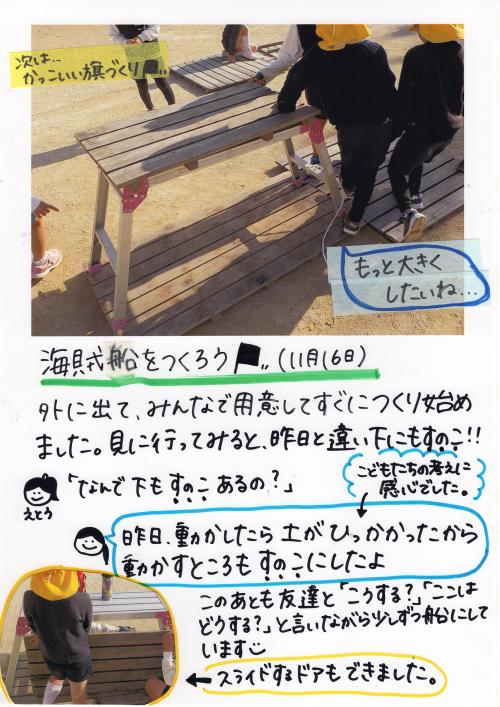 次は…
かっこいい旗づくり
もっと大きく
したいね…
海賊船をつくろう (11月16日)
外に出て、みんなで用意してすぐにつくり始め
ました。見に行ってみると、昨日と違い下にもすのこ!!
こどもたちの考えに
感心でした。
「なんで下もすのこあるの?」
えとう
昨日、動かしたら土がひっかかったから
動かすところもすのこにしたよ
このあとも友達と「こうする?」「ここは
どうする?」と言いながら少しずつ船にして
います
←スライドするドアもできました。